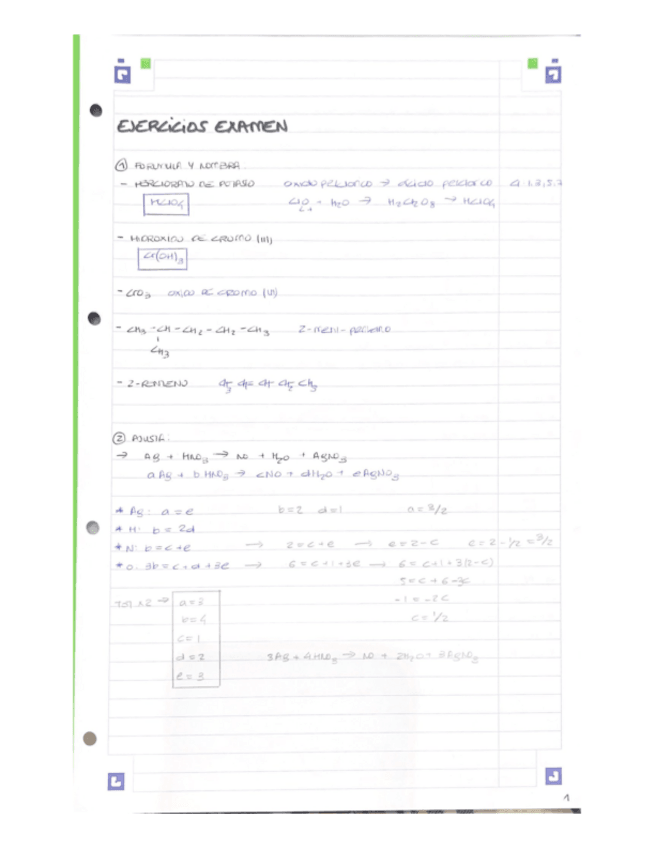 EJERCICIOS EXAMEN
① FORMULA Y NOMBRA:
- PERCLORATO DE POTASIO óxido perclorico → ácido perclorico
HClO4 + H2O → H2Cl2O8 → HClO4
- HIDRÓXIDO DE CROMO (III)
Cr(OH)3
- CrO3 óxido de cromo (VI)
- CH3 - CH - CH2 - CH2 - CH3 2-metil-pentano
CH3
- 2-PENTENO CH3 CH= CH CH2 CH3
② AJUSTA:
→ Ag + HNO3 → NO + H2O + AgNO3
a Ag + b HNO3 → cNO + dH2O + eAgNO3
* Ag: a = e b=2 d=1 a = 3/2
* H: b = 2d
* N: b = c+e → 2=c+e → e=2-c e = 2-1/2 = 3/2
* O: 3b = c+d+3e → 6=c+1+3e → 6 = c+1+3(2-c)
5=c+6-3c
-1 = -2c
c = 1/2
TOT x2 → a=3
b=4
c=1
d=2
e=3
3Ag + 4HNO3 → NO + 2H2O + 3AgNO3
1